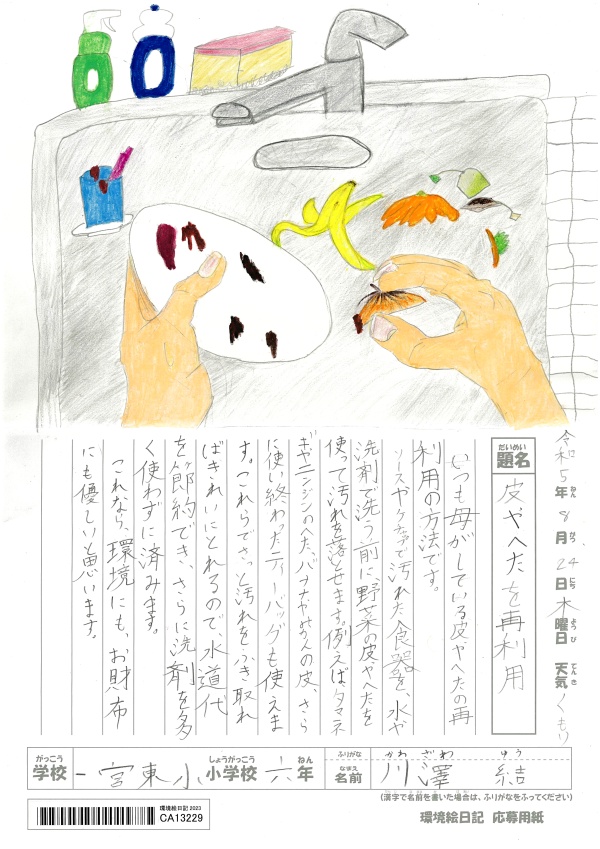 令和5年8月24日木曜日 天気くもり
ねん がつ にち ようび てんき
だいめい
題名 皮やへたを再利用
いつも母がしている皮やへたの再
利用の方法です。
ソースやケチャップで汚れた食器を、水や
洗剤で洗う前に、野菜の皮やへたを
使って汚れを落とせます。例えば、タマネ
ギやニンジンのへた、バナナやみかんの皮、さら
に使い終わったティーバッグも使えま
す。これらでさっと汚れをふき取れ
ばきれいにとれるので、水道代
を節約でき、さらに洗剤を多
く使わずに済みます。
これなら、環境にも、お財布
にも優しいと思います。
がっこう しょうがっこう ねん ふりがな かわ ざわ ゆう
学校 一宮東小小学校 六年 なまえ 名前 川澤 結
(漢字で名前を書いた場合は、ふりがなをふってください)
環境絵日記 2023
CA13229
環境絵日記 応募用紙